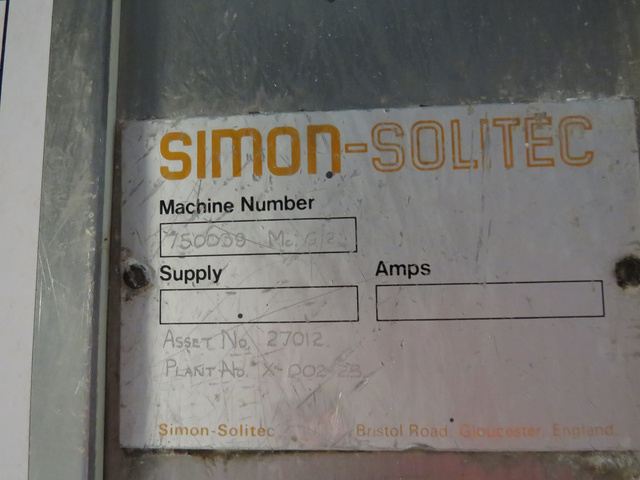 SIMON-SOLITEC
Machine Number
750039 Mc
Supply
Amps
ASSET No. 27012
PLANT No. X-002-23
Simon-Solitec
Bristol Road, Gloucester, England.